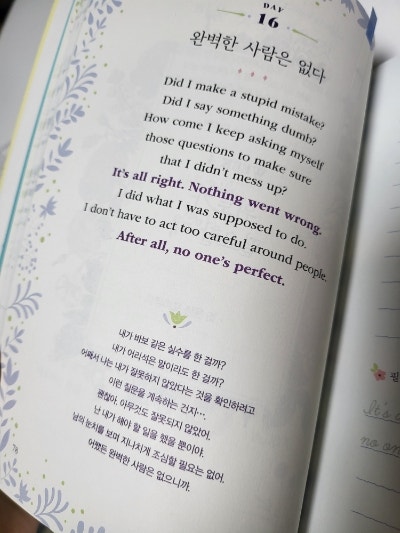 DAY
16
완벽한 사람은 없다
Did I make a stupid mistake?
Did I say something dumb?
How come I keep asking myself
those questions to make sure
that I didn't mess up?
It's all right. Nothing went wrong.
I did what I was supposed to do.
I don't have to act too careful around people.
After all, no one's perfect.
내가 바보 같은 실수를 한 걸까?
내가 어리석은 말이라도 한 걸까?
어째서 나는 내가 잘못하지 않았다는 것을 확인하려고
이런 질문을 계속하는 건지…
괜찮아. 아무것도 잘못되지 않았어.
난 내가 해야 할 일을 했을 뿐이야.
남의 눈치를 보며 지나치게 조심할 필요는 없어.
어쨌든 완벽한 사람은 없으니까.
필
It's
no on